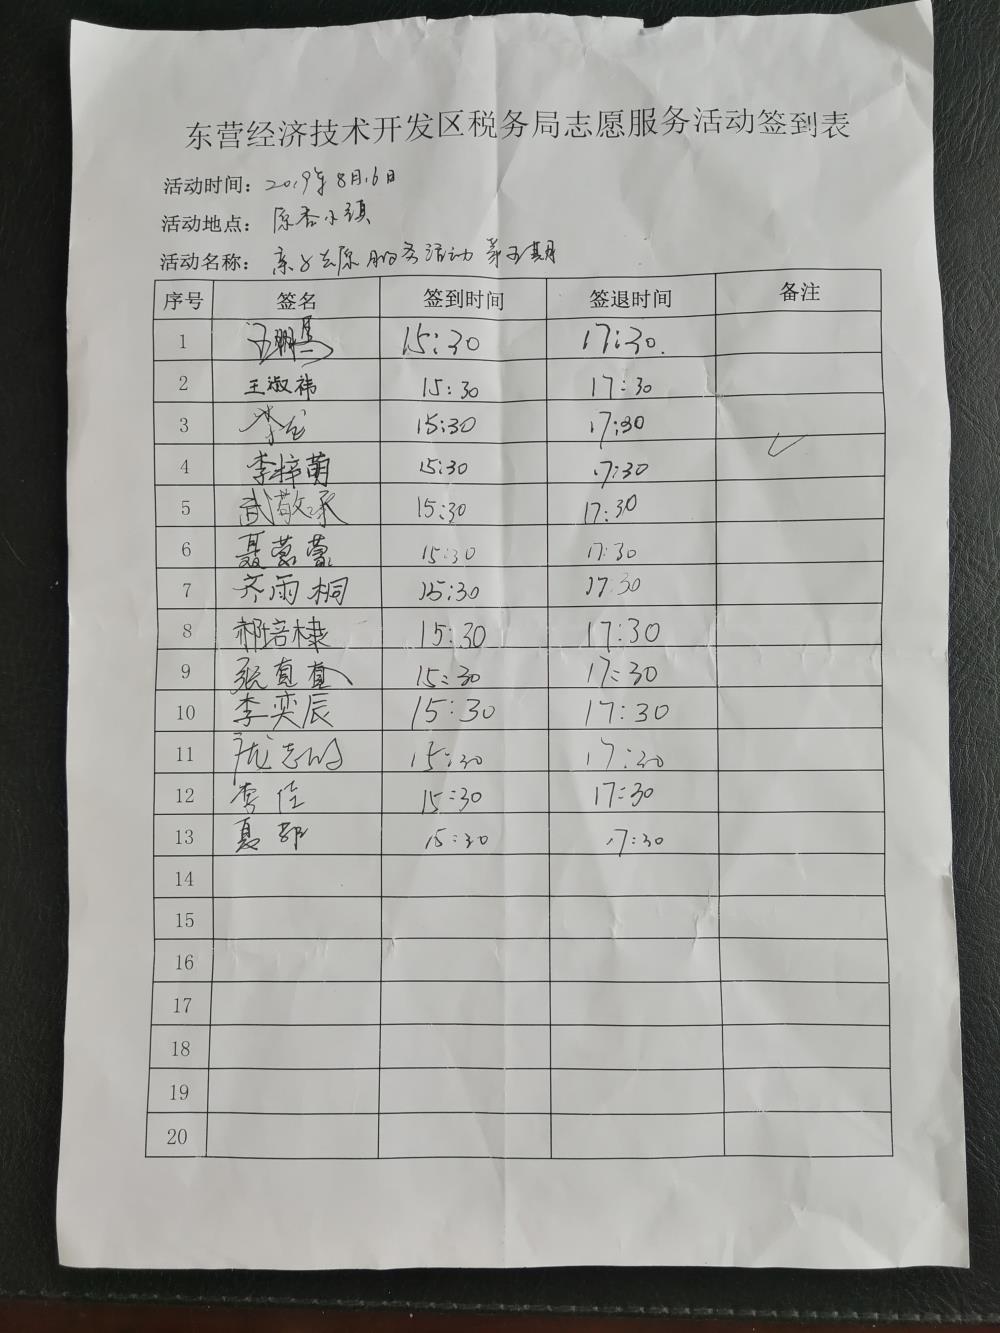 东营经济技术开发区税务局志愿服务活动签到表
活动时间：2019年8月16日
活动地点：原香小镇
活动名称：亲子志愿服务活动第五期
序号 签名 签到时间 签退时间 备注
1 15:30 17:30
2 王淑祎 15:30 17:30
3 李 15:30 17:30
4 李梓萌 15:30 17:30
5 武敬承 15:30 17:30
6 聂蒙蒙 15:30 17:30
7 齐雨桐 15:30 17:30
8 祁培棣 15:30 17:30
9 张真真 15:30 17:30
10 李奕辰 15:30 17:30
11 庞志 15:30 17:30
12 李佳 15:30 17:30
13 夏 15:30 17:30
14
15
16
17
18
19
20